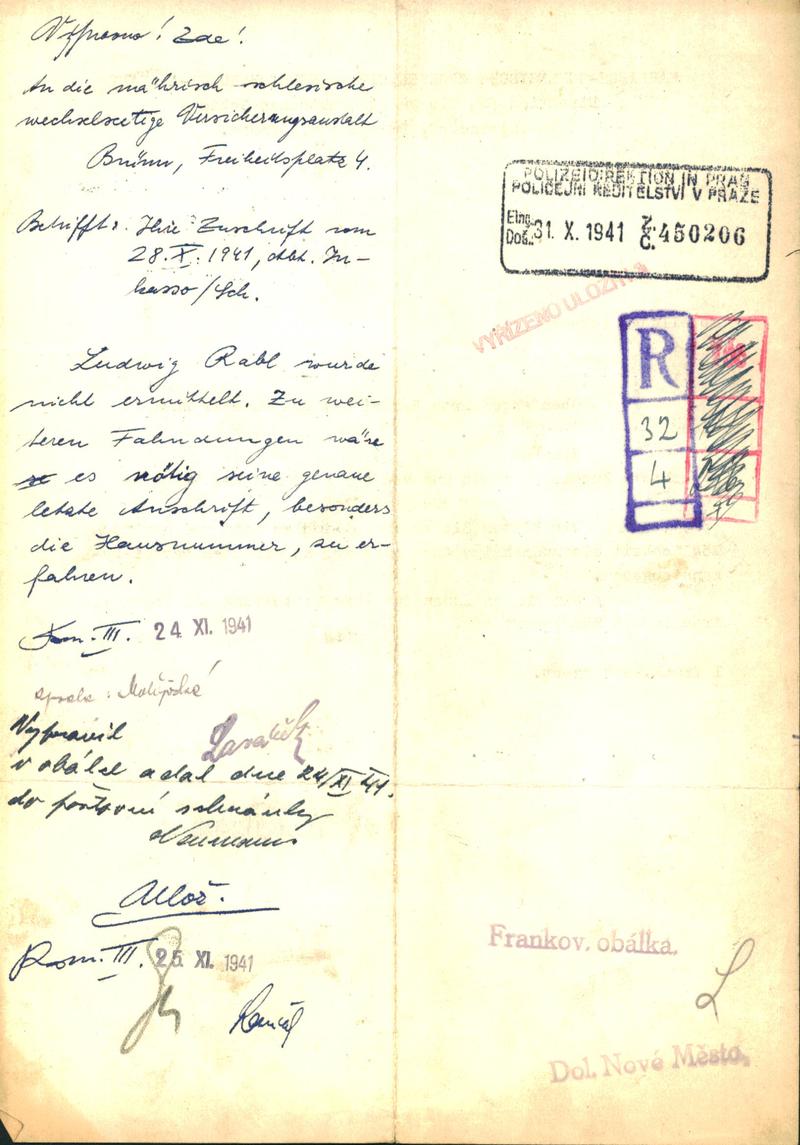 Zde!
An die mährisch-schlesische
wechselseitige Versicherungsanstalt
Brünn, Freiheitsplatz 4.
Betrifft: Ihre Zuschrift vom
28. X. 1941, Abt. In-
kasso/Sch.
Ludwig Rabl wurde
nicht ermittelt. Zu wei-
teren Fahndungen wäre
es nötig seine genaue
letzte Anschrift, besonders
die Hausnummer, zu er-
fahren.
Kom. III. 24 XI. 1941
Vypravil
v obálce a dal dne 24/XI 41.
do poštovní schránky
Neumann
Kom. III. 25 XI. 1941
POLIZEIDIREKTION IN PRAG
POLICEJNÍ ŘEDITELSTVÍ V PRAZE
Eing.
Doš. 31. X. 1941 Z. Č. 450206
VYŘÍZENO ULOŽIT
R
32
4
Frankov. obálka.
Dol. Nové Město.